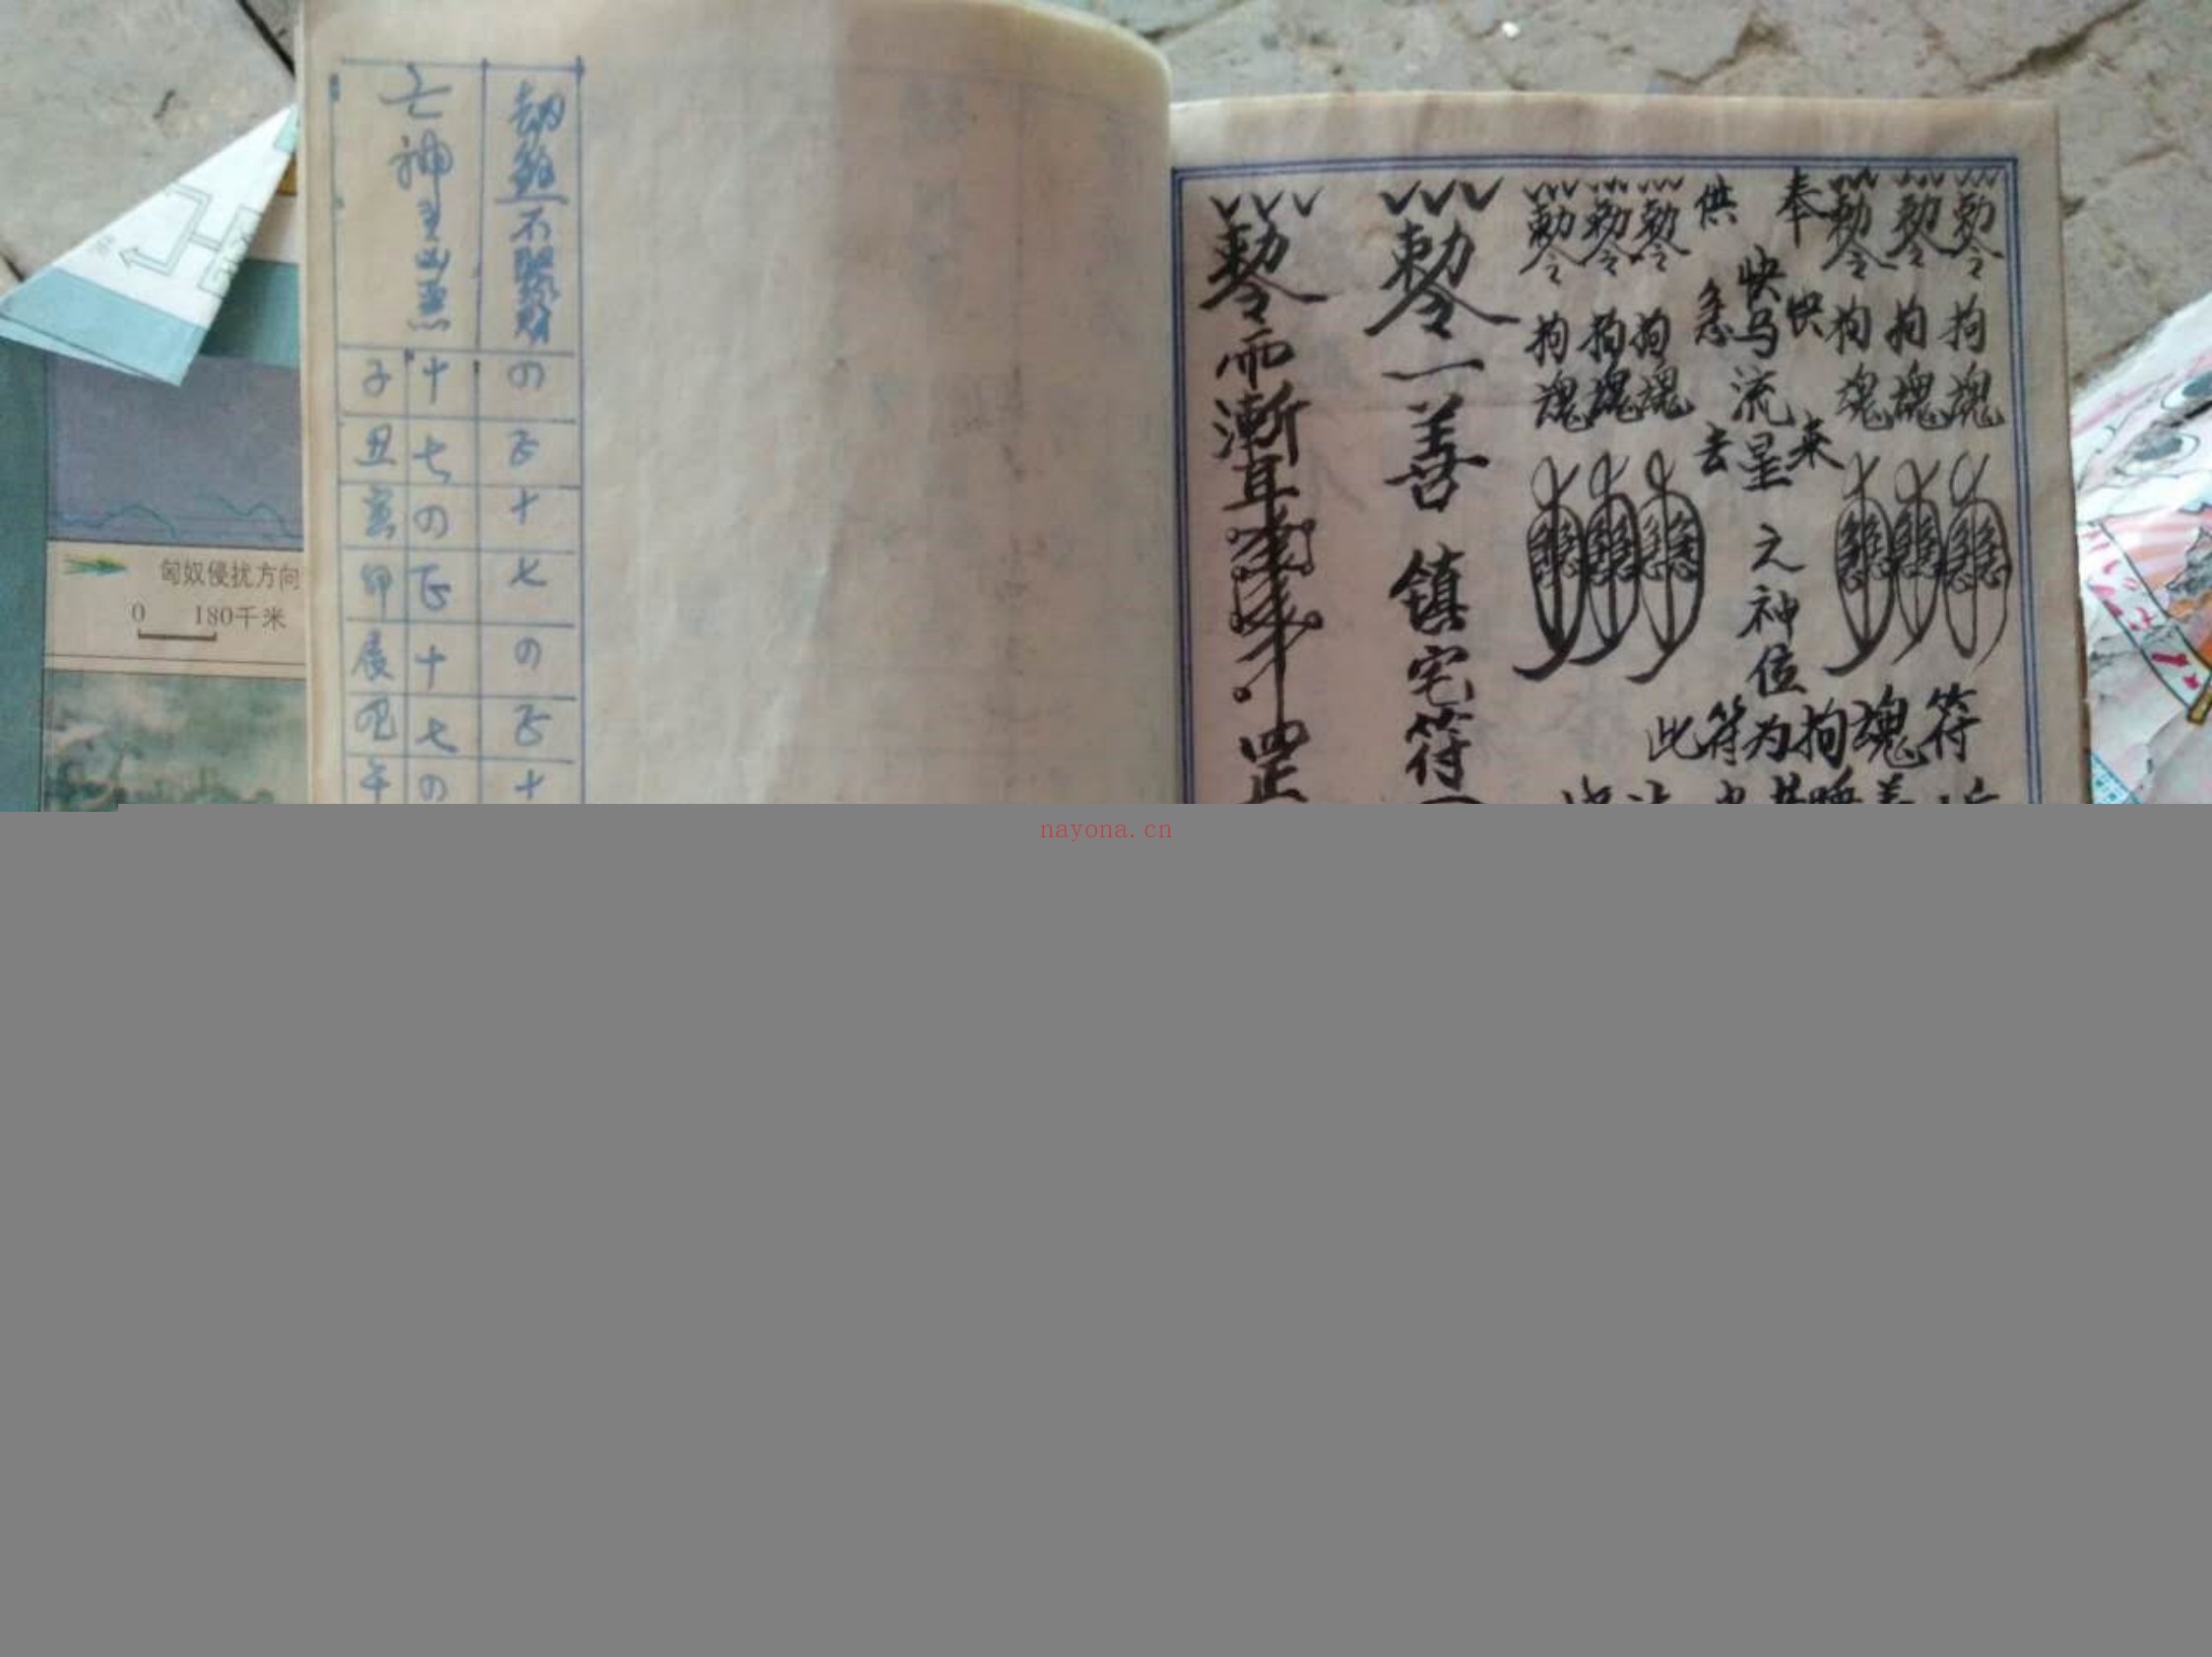 亡神主凶悪
劫煞不聚财
子 十 の
丑 七 正
寅 の 十
卯 正 七
辰 十 の
巳 七 正
午 の 十
匈奴侵扰方向
0 180千米
勅令 勅令 勅令
拘魂 拘魂 拘魂
奉
供
快马流星之神位
急
快
去
来
勅令 勅令 勅令
拘魂 拘魂 拘魂
此符为拘魂符
勅令一善 镇宅符
勅令而漸耳
罡
nayona.cn